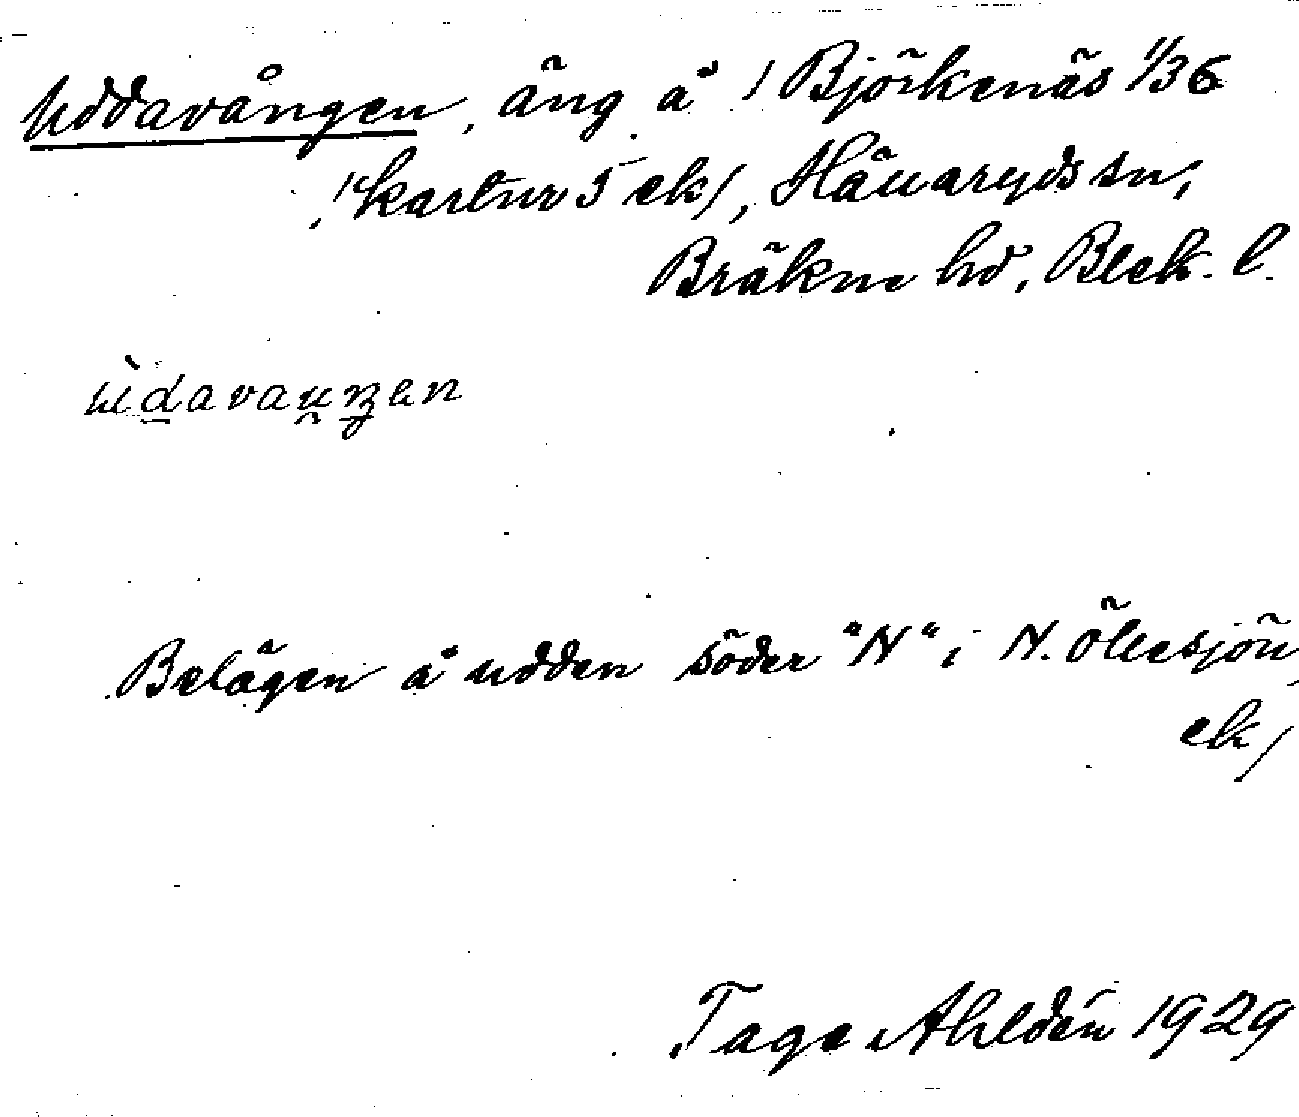 Uddavången, äng å /Björkenäs 1/36
/kartur 5 ek/, Hällaryds sn,
Bräkne hd, Blek. l.
ùdavau̯ŋen
Belägen å udden söder "N" i N. Öllesjön
ek/
Tage Ahldén 1929